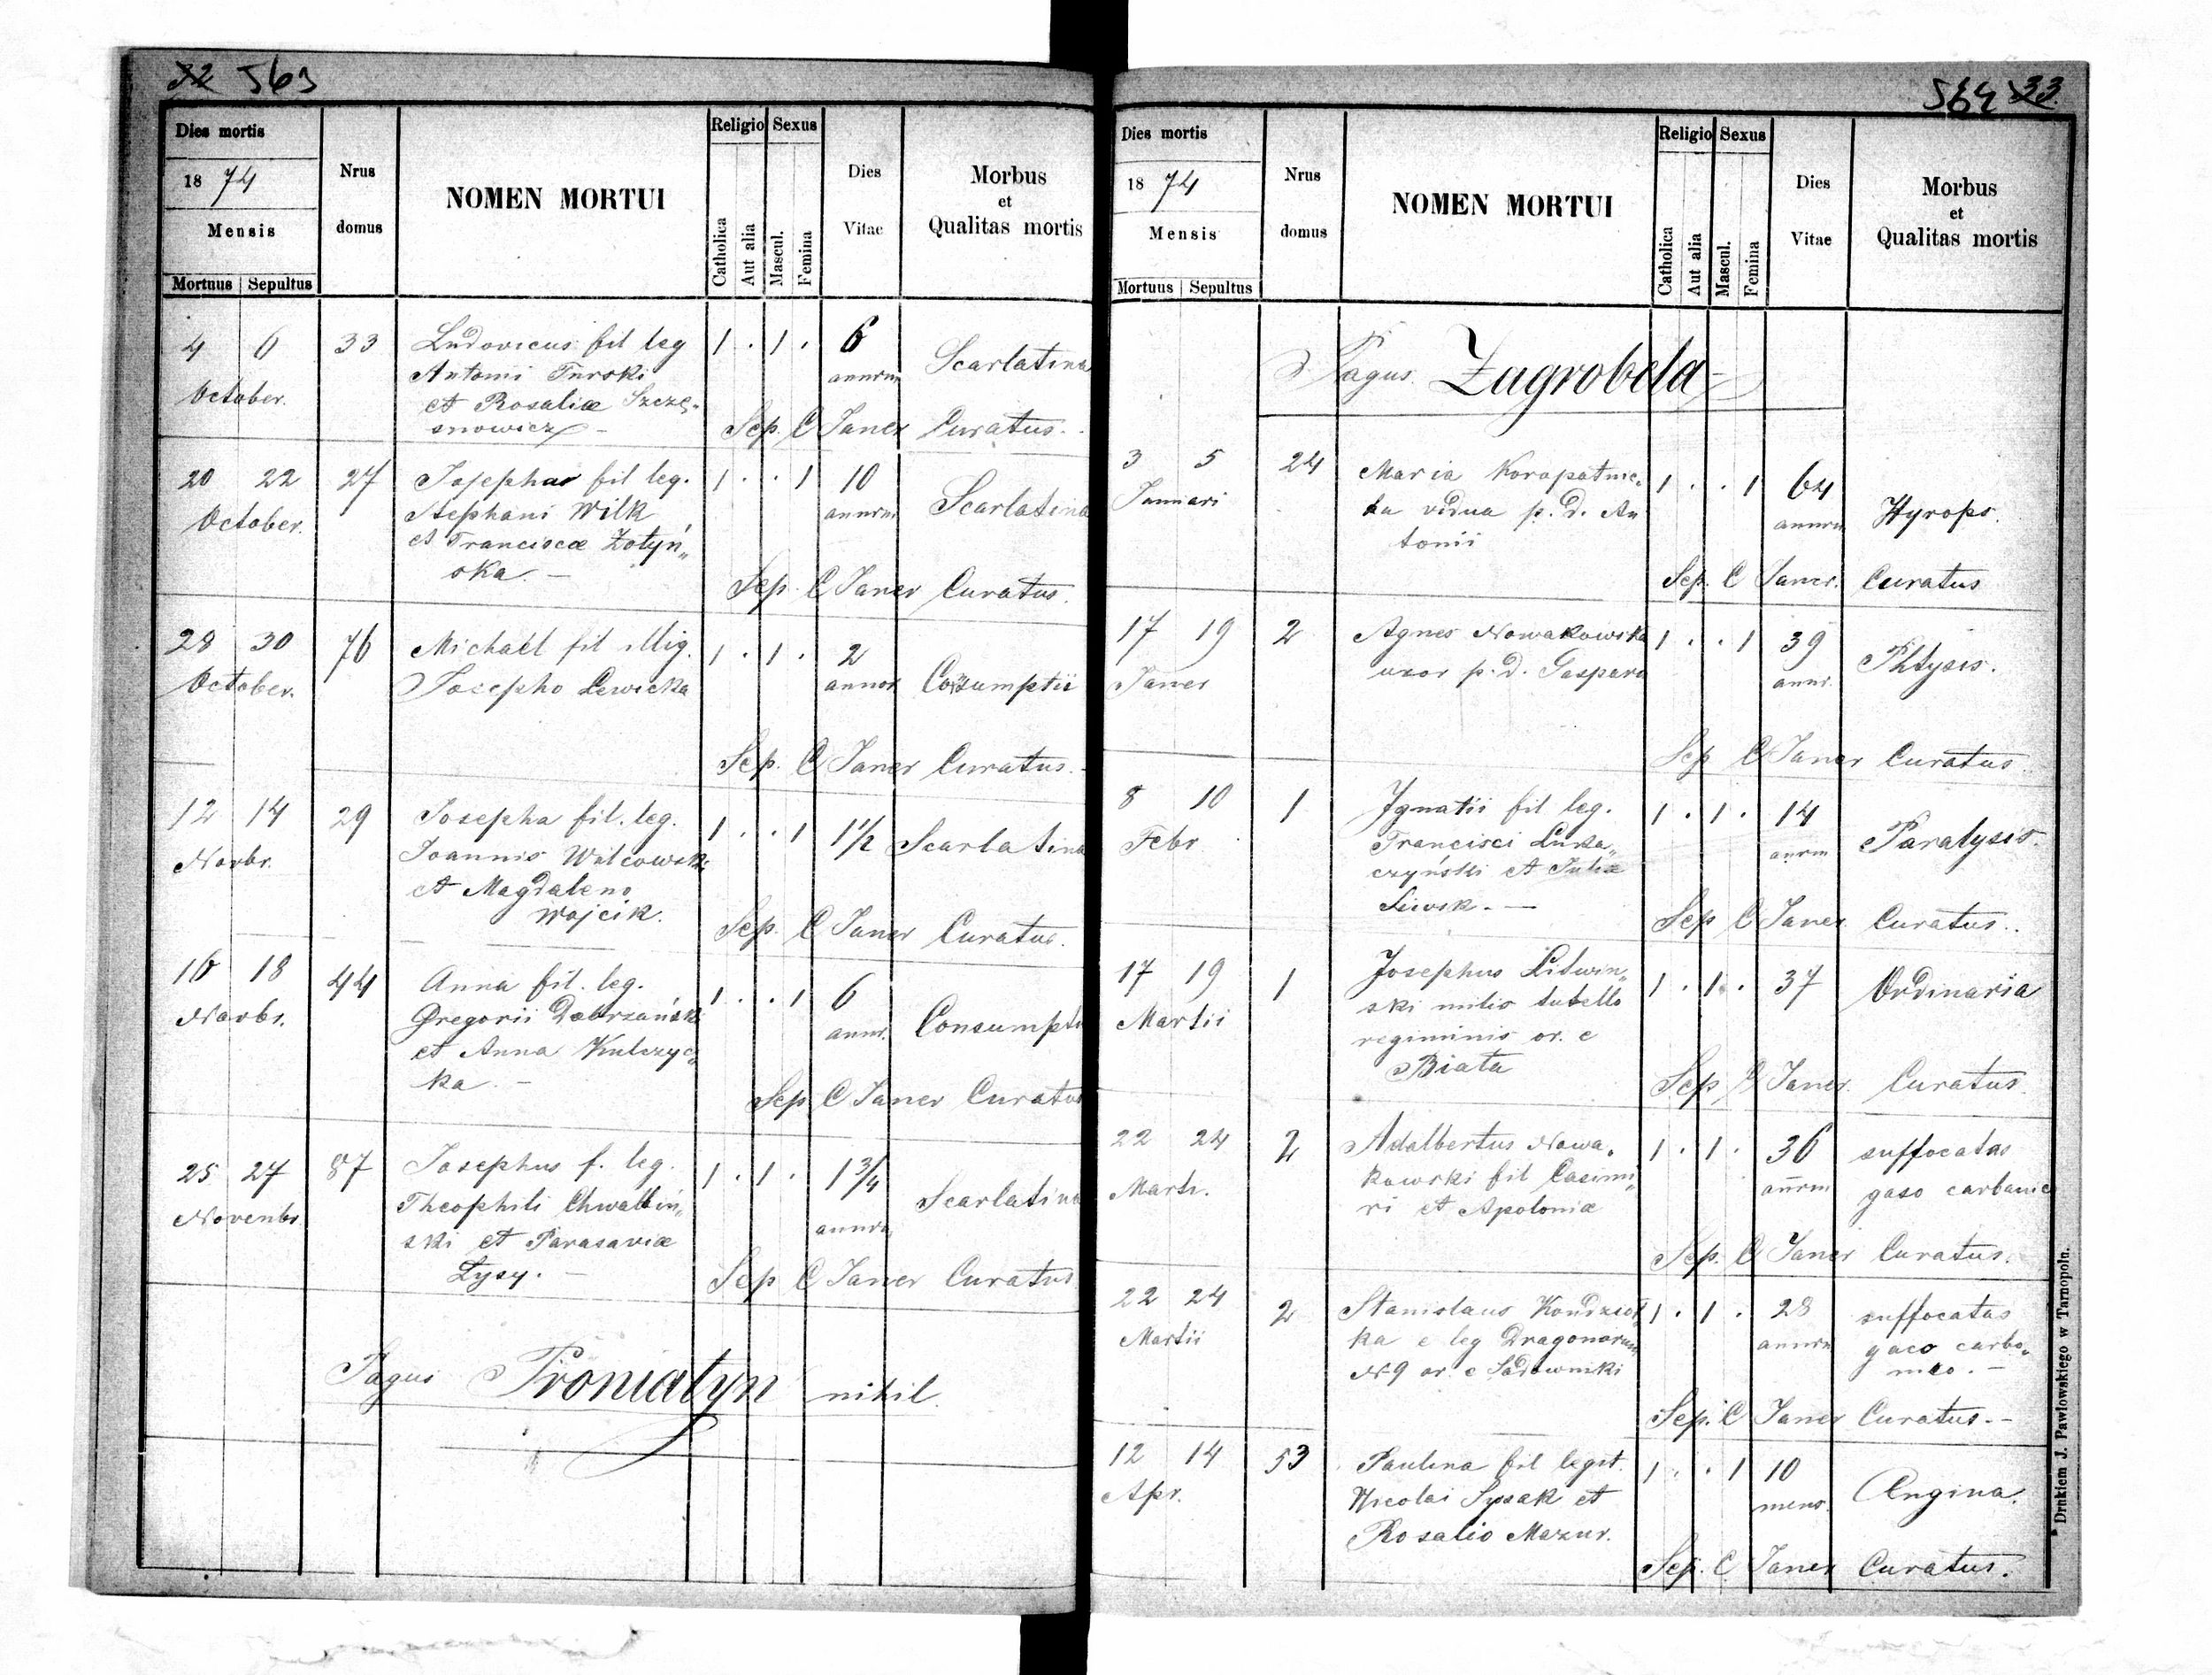 32 563
Dies mortis
1874
Mensis
Mortuus Sepultus
Nrus domus
NOMEN MORTUI
Religio
Catholica
Aut alia
Sexus
Mascul.
Femina
Dies Vitae
Morbus
et
Qualitas mortis
4 6 33 Ludovicus fil leg 1 . 1 . 6
Antoni Turski annrm Scarlatina
October. et Rosaliæ Szczę-
snowicz - Sep. C Janer Curatus.
20 22 27 Josepha fil leg. 1 . . 1 10
October. Stephani Wilk annrm Scarlatina
et Franciscæ Zotyń„
ska. - Sep. C Janer Curatus.
28 30 76 Michael fil illig. 1 . 1 . 2
October. Josepho Lewicka annor Consumptii
Sep. C Janer Curatus.
12 14 29 Josepha fil. leg. 1 . . 1 1 1/2 Scarlatina
Novbr. Joannis Walcowski
et Magdaleno
Wojcik. Sep. C Janer Curatus.
16 18 44 Anna fil. leg. 1 . . 1 6
Novbr. Gregorii Dobrzański annr. Consumpti
et Anna Kulczyc„
ka. - Sep C Janer Curatus
25 27 87 Josephus f. leg. 1 . 1 . 1 3/4
Novembr Theophili Chwalbiń„ annrm Scarlatina
ski et Parasaviæ
Łysy. - Sep C Janer Curatus
Pagus Proniatyn nihil.
564 33
Dies mortis
1874
Mensis
Mortuus Sepultus
Nrus domus
NOMEN MORTUI
Religio
Catholica
Aut alia
Sexus
Mascul.
Femina
Dies Vitae
Morbus
et
Qualitas mortis
Pagus Zagrobela
3 5 24 Maria Koropatnic„ 1 . . 1 64
Januari ka vidua p. d. An annrm Hyrops.
tonii
Sep. C Janer. Curatus
17 19 2 Agnes Nowakowska 1 . . 1 39
Janer uxor p. d. Gaspara annr. Phtysis.
Sep C Janer Curatus.
8 10 1 Ignatii fil leg. 1 . 1 . 14
Febr Francisci Luka„ anrm Paralysis.
czyński et Juliæ
Siwsk. - Sep C Janer Curatus.
17 19 1 Josephus Litwin„ 1 . 1 . 37 Ordinaria
Martii ski milis tabello
regiminis or. e
Biata Sep C Janer. Curatus.
22 24 2 Adalbertus Nowa„ 1 . 1 . 36 suffocatas
Marti. kowski fil Casimi„ anrm gaso carbanic
ri et Apoloniæ
Sep. C Janer Curatus.
22 24 2 Stanislaus Kondzioł 1 . 1 . 28 suffocatas
Martii ka e leg Dragonorum annrm gaco carbo„
N9 or. e Sadowniki nico. -
Sep. C Janer Curatus. -
12 14 53 Paulina fil legit. 1 . . 1 10
Apr. Nicolai Sysak et mens. Angina.
Rosalio Mazur.
Sep. C Janer Curatus.
Drukiem J. Pawłowskiego w Tarnopolu.